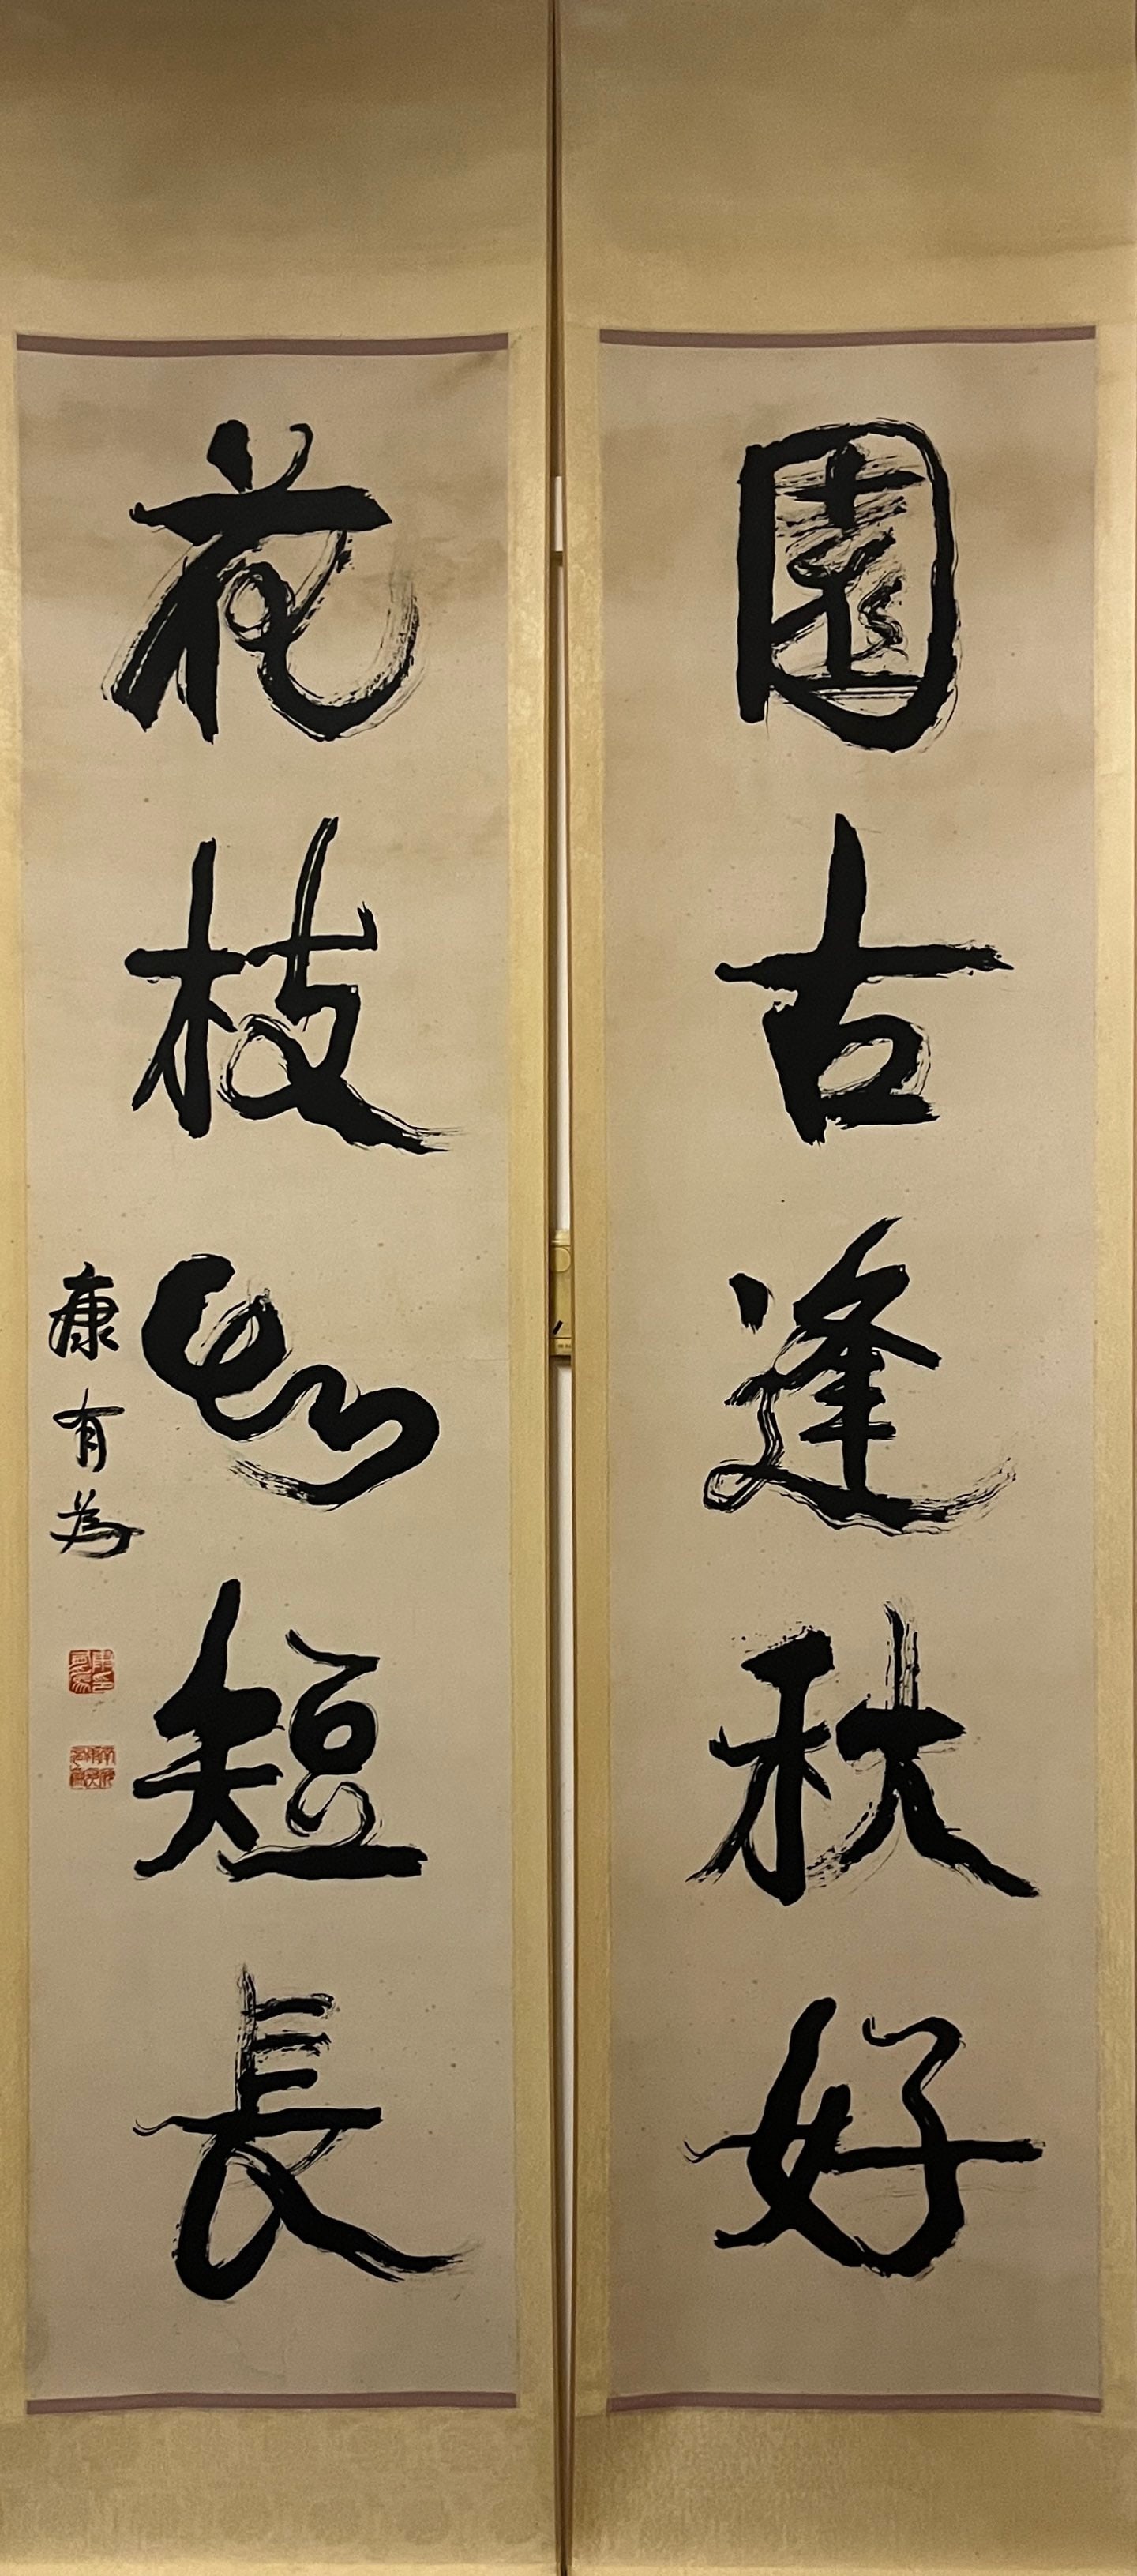 園古逢秋好
花枝短長
康有為